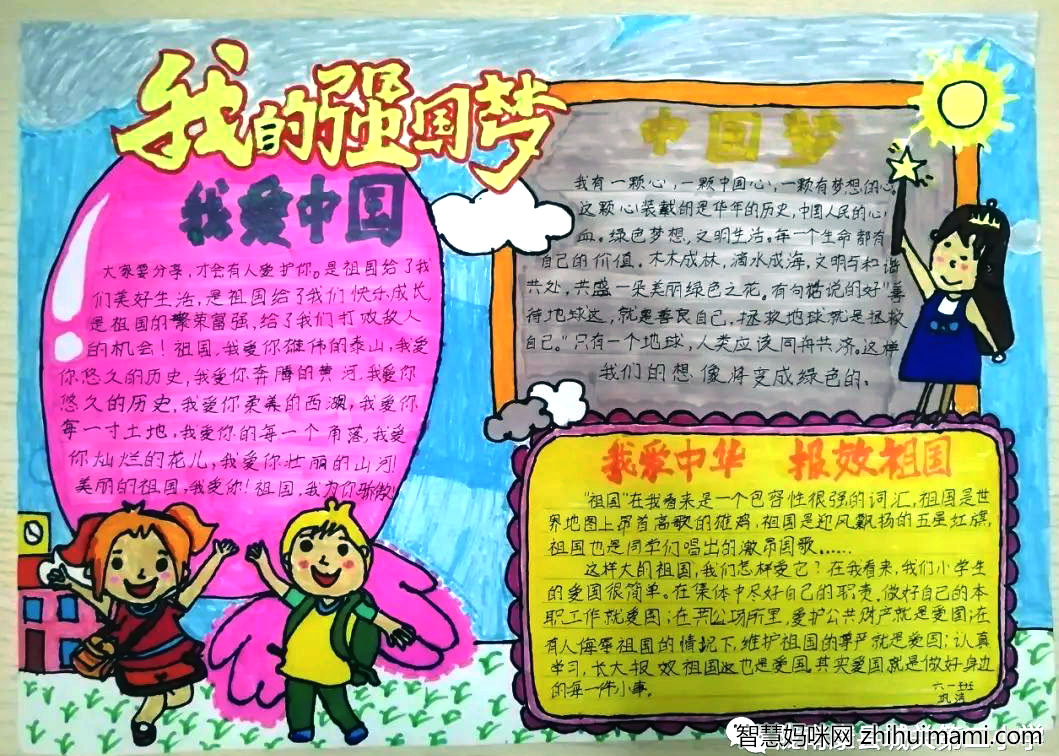 我的强国梦
我爱中国
大家要分享，才会有人爱护你。是祖国给了我
们美好生活，是祖国给了我们快乐成长
是祖国的繁荣富强，给了我们打败敌人
的机会！祖国，我爱你雄伟的泰山，我爱
你悠久的历史，我爱你奔腾的黄河，我爱你
悠久的历史，我爱你柔美的西湖，我爱你
每一寸土地，我爱你的每一个角落，我爱
你灿烂的花儿，我爱你壮丽的山河！
美丽的祖国，我爱你！祖国，我为你骄傲！
中国梦
我有一颗心，一颗中国心，一颗有梦想的心。
这颗心装载的是华年的历史，中国人民的心
血。绿色梦想，文明生活。每一个生命都有
自己的价值。木木成林，滴水成海，文明与和谐
共处，共盛一朵美丽绿色之花。有句俗说的好“善
待地球这，就是善良自己，拯救地球就是拯救
自己。”只有一个地球，人类应该同舟共济。这样
我们的想像将变成绿色的。
我爱中华 报效祖国
“祖国”在我看来是一个包容性很强的词汇，祖国是世
界地图上昂首高歌的雄鸡，祖国是迎风飘扬的五星红旗，
祖国也是同学们唱出的激昂国歌……
这样大的祖国，我们怎样爱它？在我看来，我们小学生
的爱国很简单。在集体中尽好自己的职责，做好自己的本
职工作就爱国；在公共场所里，爱护公共财产就是爱国；在
有人侮辱祖国的情况下，维护祖国的尊严就是爱国；认真
学习，长大报效祖国这也是爱国。其实爱国就是做好身边
的每一件小事。
六一班
智慧妈咪网 zhihuimami.com